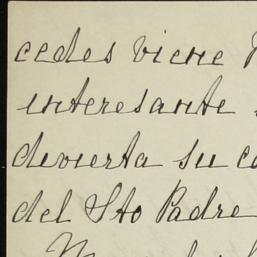 cedes viene
interesante
devierta su
del Sto Padre